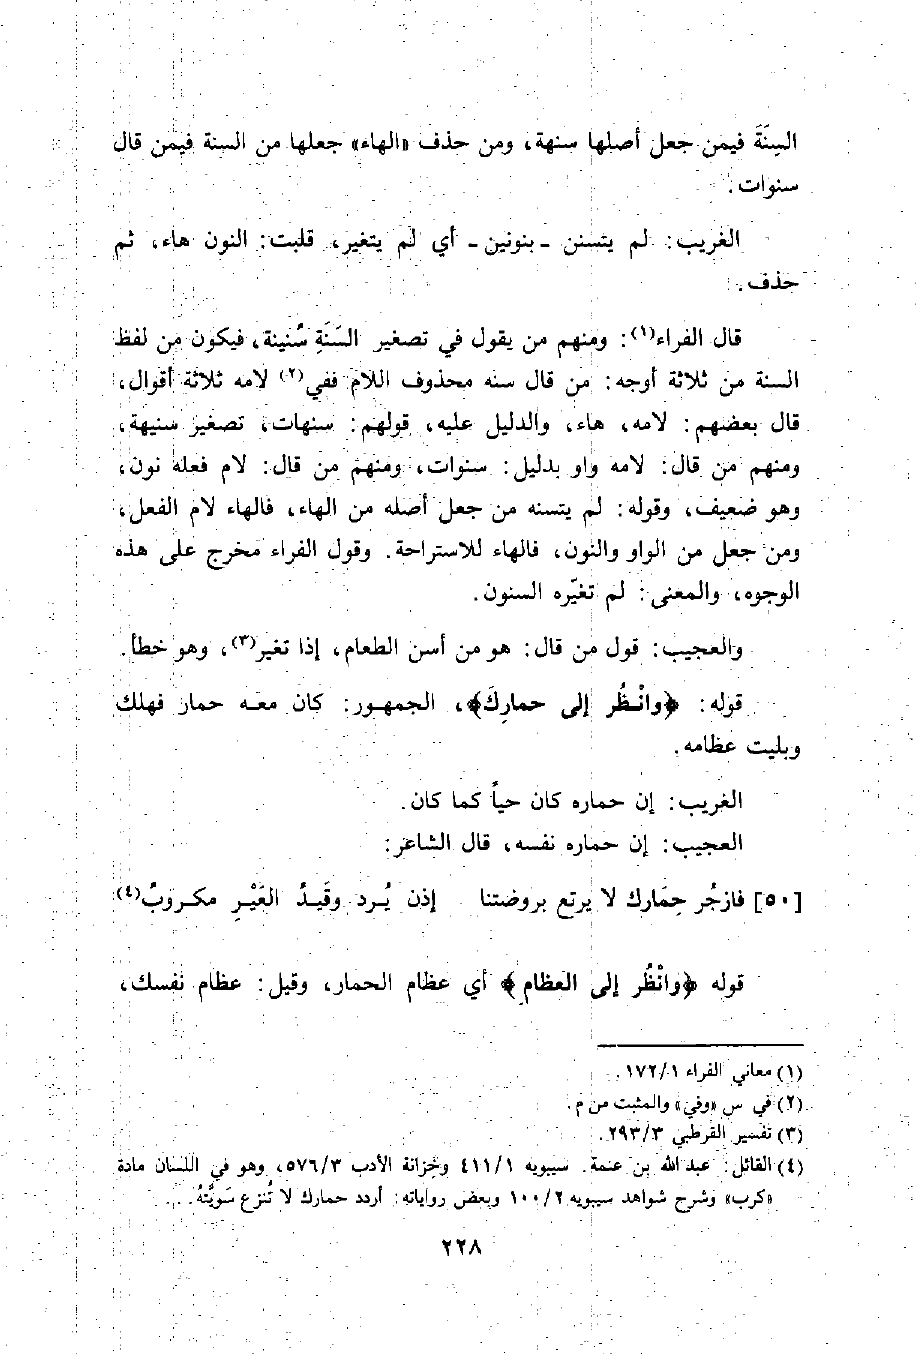 السِنَةَ فيمن جعل أصلها سنهة، ومن حذف «الهاء» جعلها من السنة فيمن قال
سنوات.
الغريب: لم يتسنن - بنونين - أي لم يتغير، قلبت: النون هاء، ثم
حذف.
قال الفراء(١): ومنهم من يقول في تصغير السَنَةِ سُنينة، فيكون من لفظ
السنة من ثلاثة أوجه: من قال سنه محذوف اللام ففي(٢) لامه ثلاثة أقوال،
قال بعضهم: لامه، هاء، والدليل عليه، قولهم: سنهات، تصغير سنيهة،
ومنهم من قال: لامه واو بدليل: سنوات، ومنهم من قال: لام فعله نون،
وهو ضعيف، وقوله: لم يتسنه من جعل أصله من الهاء، فالهاء لام الفعل،
ومن جعل من الواو والنون، فالهاء للاستراحة. وقول الفراء مخرج على هذه
الوجوه، والمعنى: لم تغيّره السنون.
والعجيب: قول من قال: هو من أسن الطعام، إذا تغير(٣)، وهو خطأ.
قوله: ﴿وانْظُر إلى حمارِكَ﴾، الجمهور: كان معه حمار فهلك
وبليت عظامه.
الغريب: إن حماره كان حياً كما كان.
العجيب: إن حماره نفسه، قال الشاعر:
[٥٠] فازجُر حِمَارك لا يرتع بروضتنا إذن يُرد وقَيدُ العَيْرِ مكروبُ(٤)
قوله ﴿وانْظُر إلى العظام﴾ أي عظام الحمار، وقيل: عظام نفسك،
(١) معاني الفراء ١٧٢/١.
(٢) في س «وفي» والمثبت من م.
(٣) تفسير القرطبي ٢٩٣/٣.
(٤) القائل: عبد الله بن عنمة. سيبويه ٤١١/١ وخزانة الأدب ٥٧٦/٣، وهو في اللسان مادة
«كرب» وشرح شواهد سيبويه ١٠٠/٢ وبعض رواياته: أردد حمارك لا تُنزع سَويَّتهُ...
٢٢٨